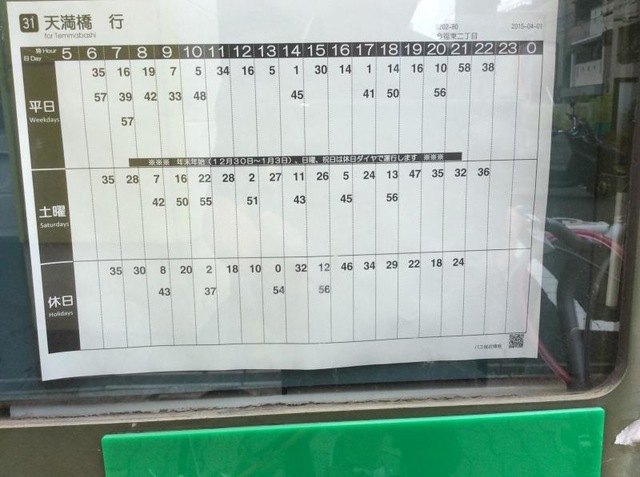 31 天満橋 行
for Temmabashi
202-80 2015-04-01
今福東二丁目
時 Hour 5 6 7 8 9 10 11 12 13 14 15 16 17 18 19 20 21 22 23 0
日 Day
35 16 19 7 5 34 16 5 1 30 14 1 14 16 10 58 38
57 39 42 33 48 45 41 50 56
57
平日
Weekdays
※※※ 年末年始(12月30日~1月3日)、日曜、祝日は休日ダイヤで運行します ※※※
35 28 7 16 22 28 2 27 11 26 5 24 13 47 35 32 36
42 50 55 51 43 45 56
土曜
Saturdays
35 30 8 20 2 18 10 0 32 12 46 34 29 22 18 24
43 37 54 56
休日
Holidays